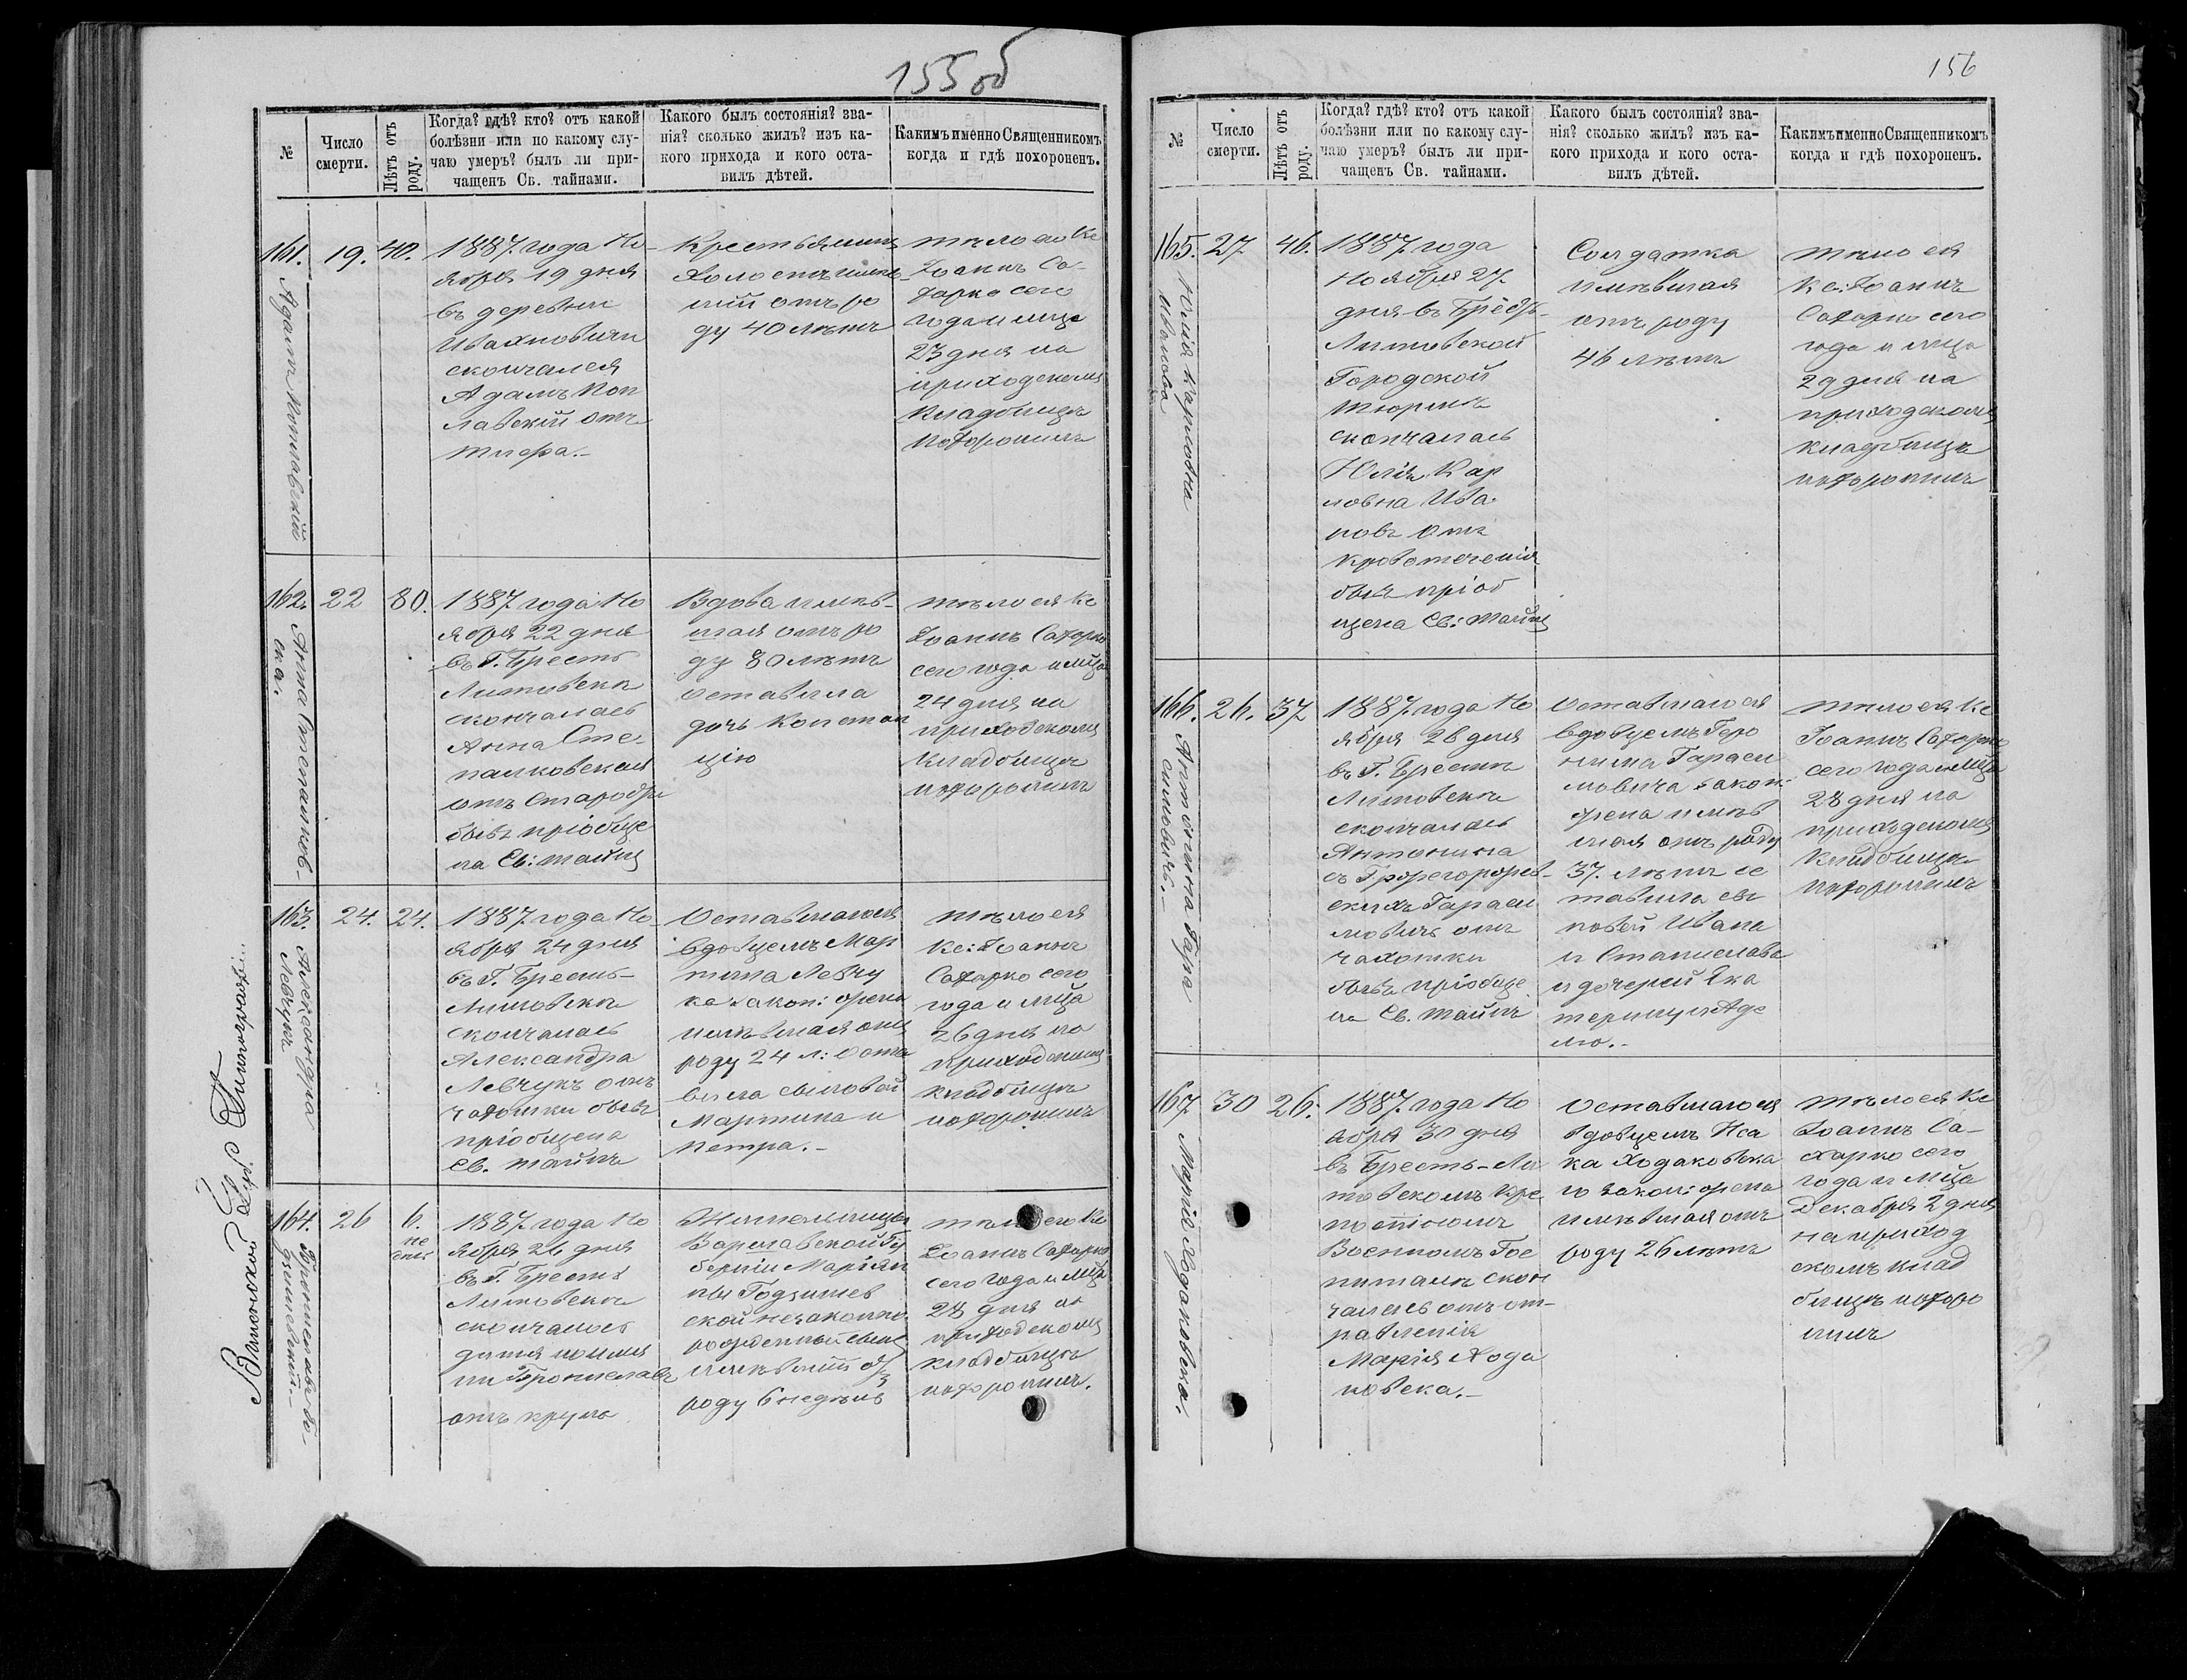 155 об
№
Число смерти.
Лѣтъ отъ роду.
Когда? гдѣ? кто? отъ какой
болѣзни или по какому слу-
чаю умеръ? былъ ли при-
чащенъ Св. тайнами.
Какого былъ состоянія? зва-
нія? сколько жилъ? изъ ка-
кого прихода и кого оста-
вилъ дѣтей.
Какимъ именно Священникомъ
когда и гдѣ похороненъ.
161.
Адамъ
19.
40.
1887. года Но-
ября 19 дня
въ деревни
Ивахновичи
скончался
Адамъ Коп
лавскій отъ
тифа.-
Крестьянинъ
Холостъ имѣв-
шій отъ ро
ду 40 лѣтъ
тѣло его Кс
Іоаннъ Са-
харко сего
года и мца
23 дня на
приходскомъ
Кладбищѣ
похоронилъ
162.
Анна Степанков
ска.
22
80.
1887 года Но
ября 22 дня
въ Г. Брестъ
Литовскѣ
скончалась
Анна Сте-
панковская
отъ старости
бывъ пріобще
на Св: тайнъ
Вдова имѣв-
шая отъ ро
ду 80 лѣтъ
оставила
дочь Констан
цію
тѣло ея Кс
Іоаннъ Сахарко
сего года и мца
24 дня на
приходскомъ
Кладбищѣ
похоронилъ
163.
Александра
Левчукъ
24.
24.
1887 года Но-
ября 24 дня
въ Г. Брестъ-
Литовскѣ
скончалась
Александра
Левчукъ отъ
чахотки бывъ
пріобщена
Св. тайнъ
Оставшагося
вдовцемъ Мар
тина Левчу
ка закон: жена
имѣвшая отъ
роду 24 л: оста
вила сыновей
Мартина и
Петра.-
тѣло ея
Кс: Іоаннъ
Сахарко сего
года и мца
26 дня на
приходскомъ
кладбищѣ
похоронилъ
164.
Брониславъ
26
6.
не
1887 года Но
ября 26 дня
въ Г. Брестъ
Литовскѣ
скончалось
дитя имен
ни Брониславъ
отъ крупа
Жительницы
Варшавской Гу
берніи Маріан
ны Годзишев
ской незаконно
рожденный сынъ
имѣвшій отъ
роду 6 недѣль
тѣло его Кс
Іоаннъ Сахарко
сего года и мца
28 дня на
приходскомъ
кладбищѣ
похоронилъ.
156
№
Число смерти.
Лѣтъ отъ роду.
Когда? гдѣ? кто? отъ какой
болѣзни или по какому слу-
чаю умеръ? былъ ли при-
чащенъ Св. тайнами.
Какого былъ состоянія? зва-
нія? сколько жилъ? изъ ка-
кого прихода и кого оста-
вилъ дѣтей.
Какимъ именно Священникомъ
когда и гдѣ похороненъ.
165.
Юлія Карловна
Иванова
27
46.
1887. года
Ноября 27
дня въ Брестъ-
Литовской
Городской
тюрмѣ
скончалась
Юлія Кар
ловна Ива-
новъ отъ
кровотеченія
бывъ пріоб
щена Св: тайнъ
Солдатка
имѣвшая
отъ роду
46 лѣтъ
тѣло ея
Кс: Іоаннъ
Сахарко сего
года и мца
29 дня на
приходскомъ
кладбищѣ
похоронилъ
166.
Антонина Гара
симовичъ.-
26.
37
1887. года Но
ября 26 дня
въ Г. Брестъ
Литовскѣ
скончалась
Антонина
скихъ Гараси
мовичъ отъ
чахотки
бывъ пріобще
на Св. тайнъ
Оставшагося
вдовцемъ Геро
нима Гараси
мовича закон:
жена имѣв
шая отъ роду
37. лѣтъ ос
тавила сы
новей Ивана
и Станислава
и дочерей Ека
терину и Аде
лю.-
тѣло ея Кс
Іоаннъ Сахарко
сего года и мца
28 дня на
приходскомъ
Кладбищѣ
похоронилъ
167
Марія Ходаковска.
30
26.
1887. года Но
ября 30 дня
въ Брестъ-Ли
товскомъ Крѣ
постномъ
Военномъ Гос
питалѣ скон
чалась отъ от-
равленія
Марія Хода
ковска.-
Оставшагося
вдовцемъ Иса
ка Ходаковска
го закон: жена
имѣвшая отъ
роду 26 лѣтъ
тѣло ея Кс
Іоаннъ Са-
харко сего
года и мца
Декабря 2 дня
на приход
скомъ клад
бищѣ похоро
нилъ